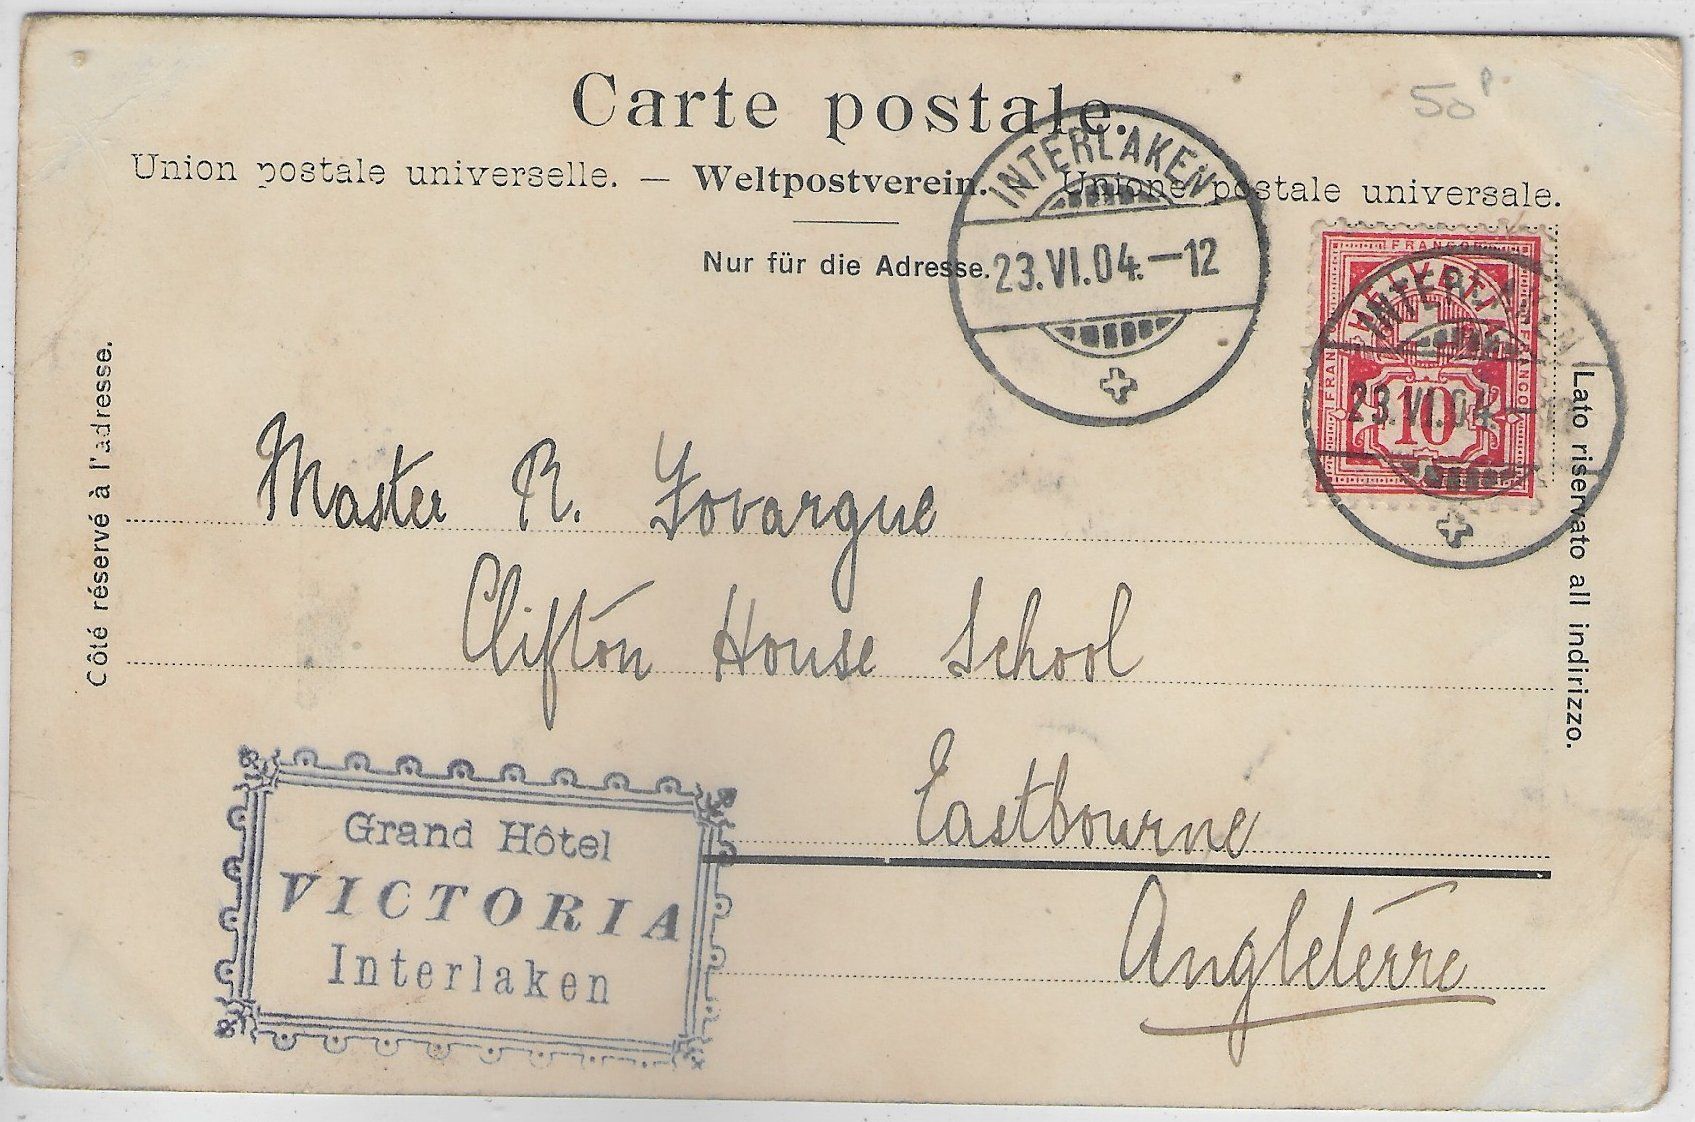 Carte postale.
50 P
Union postale universelle. — Weltpostverein. — Unione postale universale.
Nur für die Adresse.
INTERLAKEN
23.VI.04.—12
FRANCO
HELVETIA
FRANCO
FRANCO
10
INTERLAKEN
23.VI.04.—
Côté réservé à l'adresse.
Lato riservato all indirizzo.
Master R. Fovargue
Clifton House School
Eastbourne
Angletèrre
Grand Hôtel
VICTORIA
Interlaken